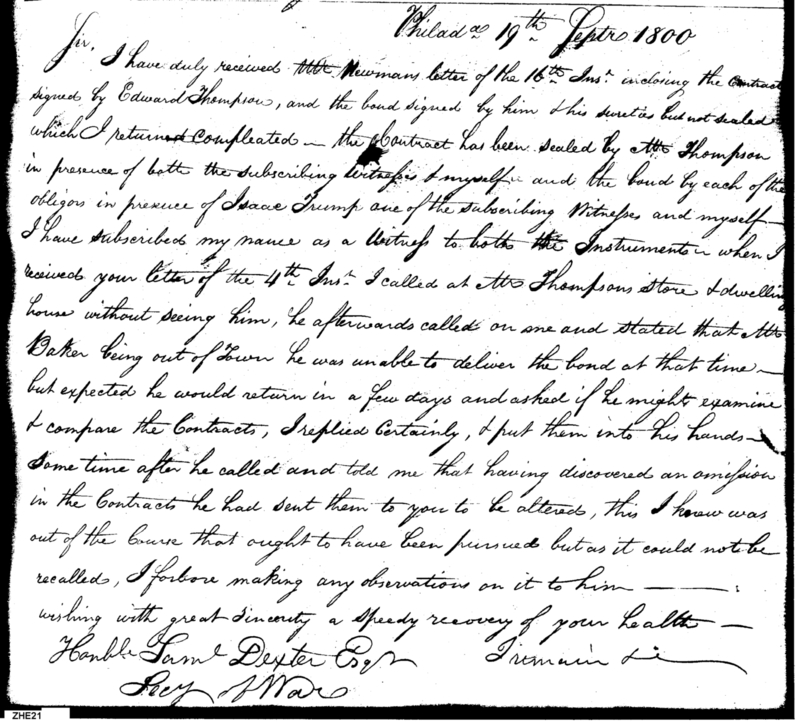 Philad.a 19th Septr 1800
Sir,
I have duly received Mr Newmans letter of the 16th Inst. inclosing the Contract
signed by Edward Thompson, and the bond signed by him & his sureties but not sealed
which I return compleated — the Contract has been sealed by Mr Thompson
in presence of both the subscribing Witnesses & myself — and the bond by each of the
obligors in presence of Isaac Trump one of the subscribing Witnesses and myself —
I have subscribed my name as a Witness to both the Instruments — when I
received your letter of the 4th Inst. I called at Mr Thompsons store & dwelling
house without seeing him, he afterwards called on me and stated that Mr
Baker being out of Town he was unable to deliver the bond at that time —
but expected he would return in a few days and asked if he might examine
& compare the Contracts, I replied Certainly, & put them into his hands —
Some time after he called and told me that having discovered an omission
in the Contracts he had sent them to you to be altered, this I knew was
out of the Course that ought to have been pursued but as it could not be
recalled, I forbore making any observations on it to him — — — :
wishing with great sincerity a speedy recovery of your health —
Honble Saml Dexter Esqr I remain &c
Secy of War
ZHE21